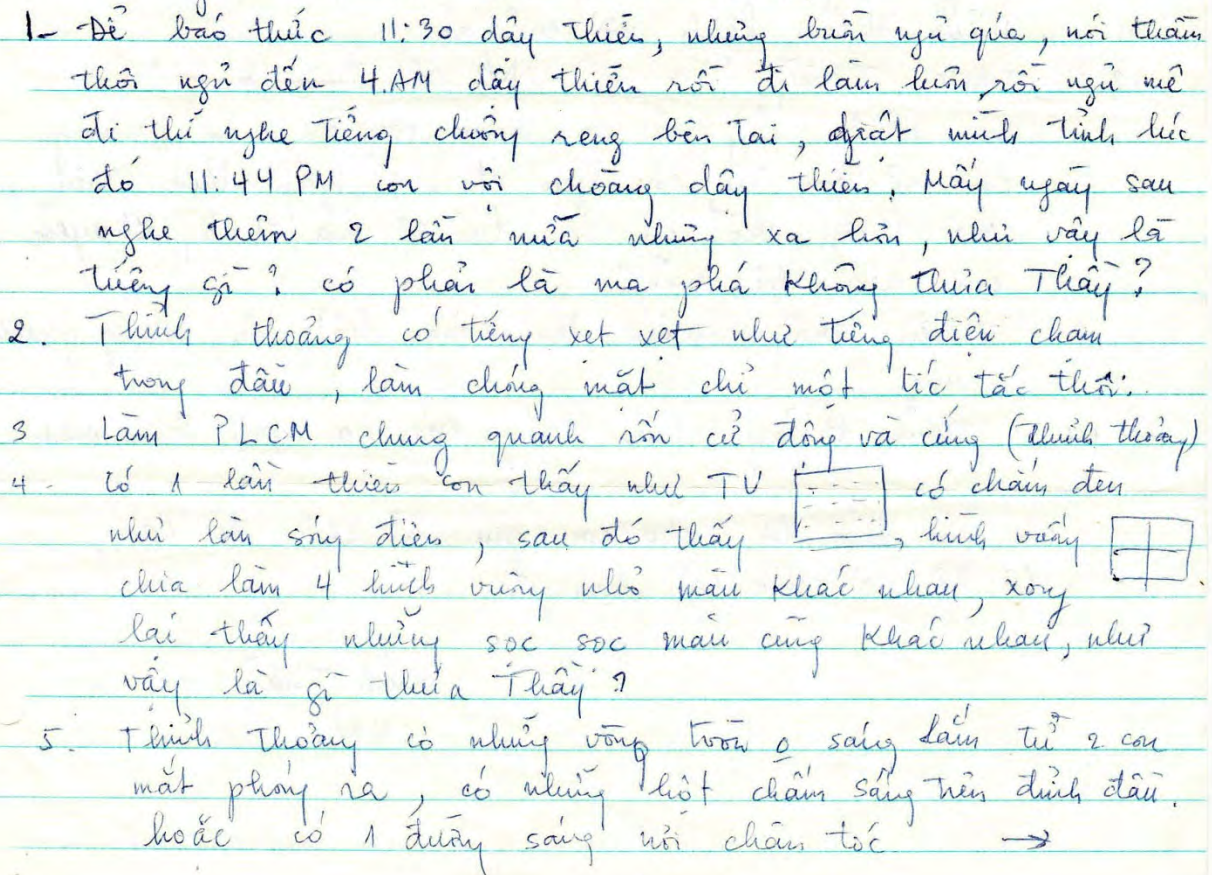 1- Để báo thức 11:30 dậy thiền, nhưng buồn ngủ quá, nói thầm
thôi ngủ đến 4.AM dậy thiền rồi đi làm luôn, rồi ngủ mê
đi thì nghe tiếng chuông reng bên tai, giật mình tỉnh lúc
đó 11:44 PM con vội choàng dậy thiền. Mấy ngày sau
nghe thêm 2 lần nữa nhưng xa hơn, như vậy là
tiếng gì? có phải là ma phá không thưa Thầy?
2. Thỉnh thoảng có tiếng xet xet như tiếng điện chạm
trong đầu, làm chóng mặt chỉ một tíc tắc thôi.
3 Làm PLCM chung quanh rốn cử động và cứng (thỉnh thoảng)
4- Có 1 lần thiền con thấy như TV có chấm đen
như làn sóng điện, sau đó thấy, hình vuông
chia làm 4 hình vuông nhỏ màu khác nhau, xong
lại thấy những sọc sọc màu cũng khác nhau, như
vậy là gì thưa Thầy?
5. Thỉnh thoảng có những vòng tròn o sáng lắm từ 2 con
mắt phóng ra, có những hột chấm sáng trên đỉnh đầu.
hoặc có 1 đường sáng nơi chân tóc →